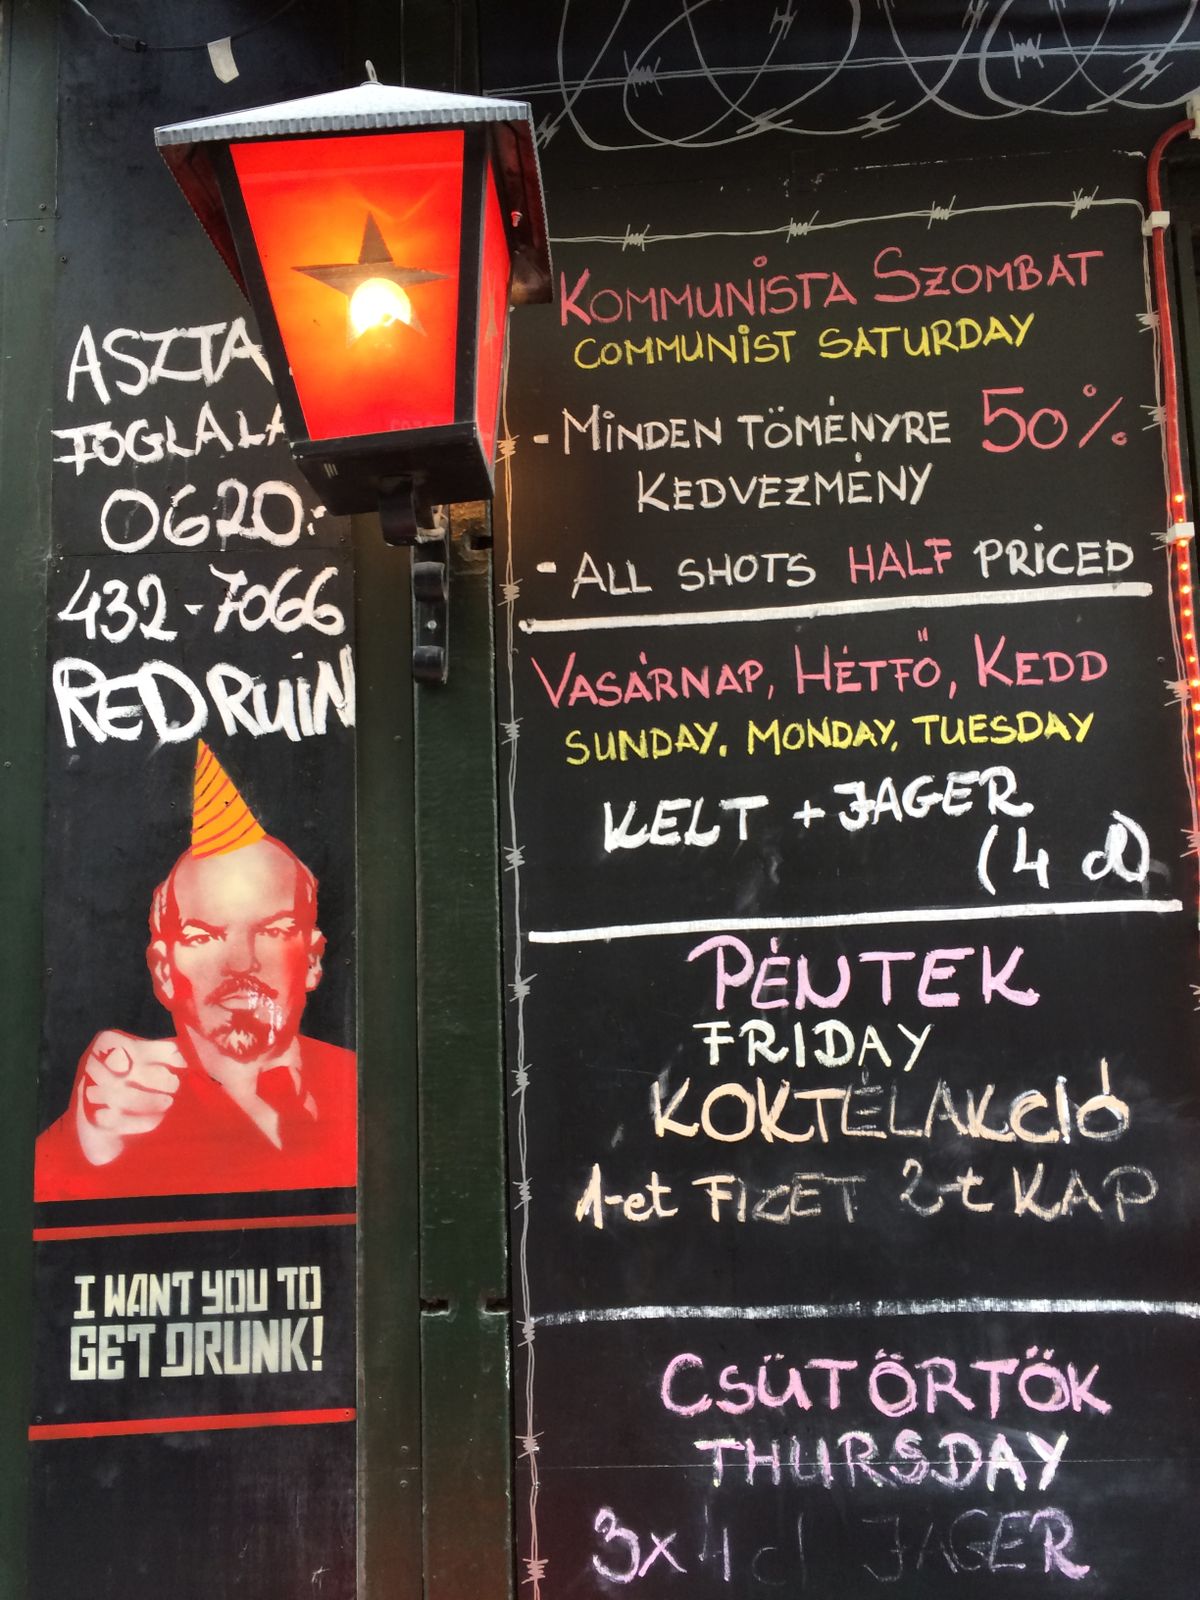 0620-
432-7066
RED RUIN
I WANT YOU TO
GET DRUNK!
KOMMUNISTA SZOMBAT
COMMUNIST SATURDAY
- MINDEN TÖMÉNYRE 50%
KEDVEZMÉNY
- ALL SHOTS HALF PRICED
VASÁRNAP, HÉTFŐ, KEDD
SUNDAY, MONDAY, TUESDAY
KELT + JAGER
(4 cl)
PÉNTEK
FRIDAY
KOKTÉLAKCIÓ
1-et FIZET 2-t KAP
CSÜTÖRTÖK
THURSDAY
3x 4 cl JAGER